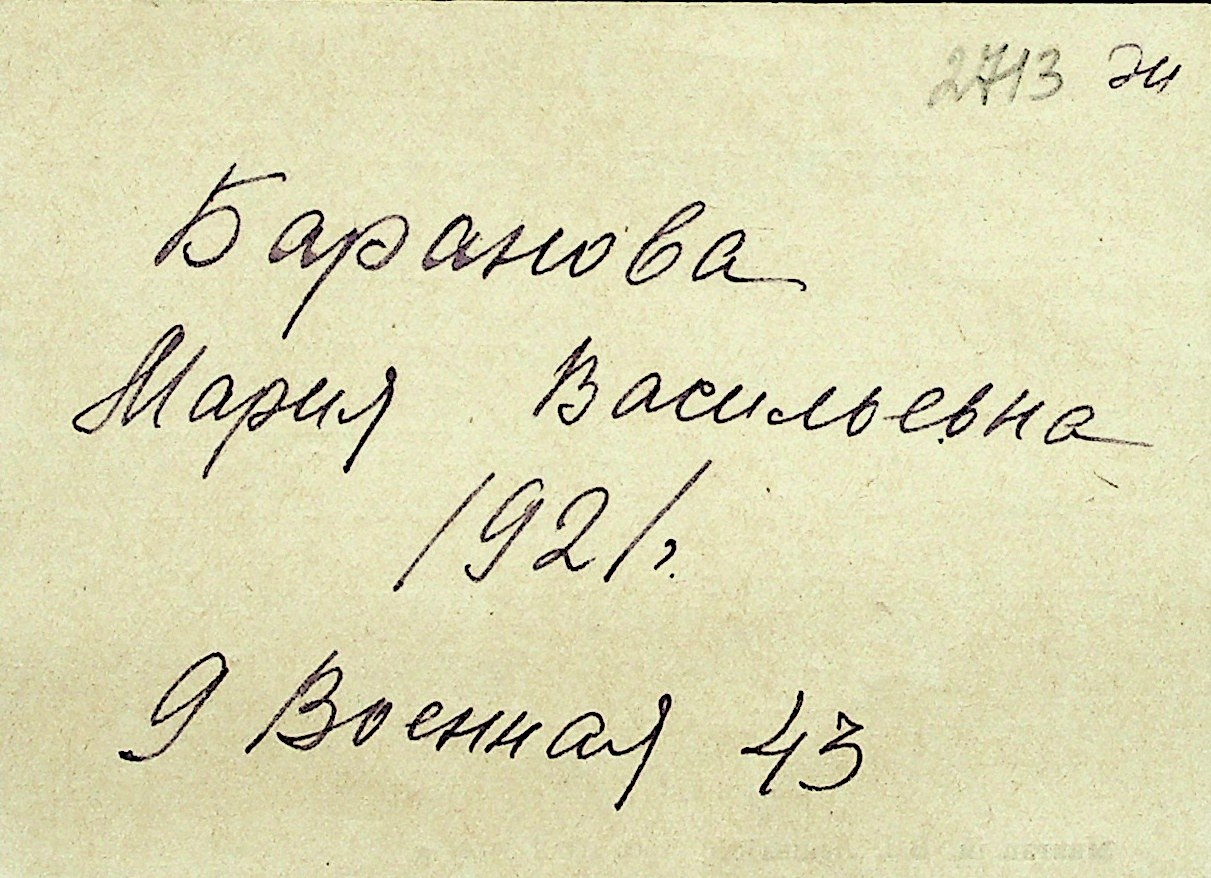 2713 эи
Баранова
Мария Васильевна
1921г.
9 Военная 43